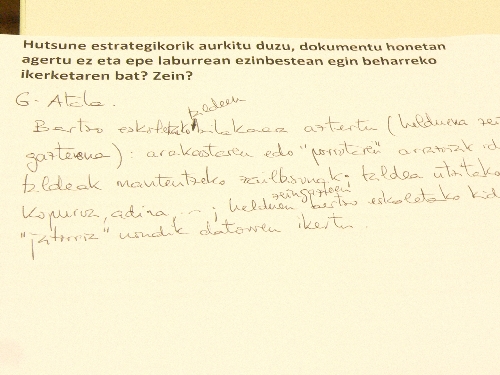 Hutsune estrategikorik aurkitu duzu, dokumentu honetan
agertu ez eta epe laburrean ezinbestean egin beharreko
ikerketaren bat? Zein?
6. Atala.
taldeen
Bertso eskoletako bilakaera aztertu (helduena zein
gazteena): arrakastaren edo "porrotaren" arrazoiak
taldeak mantentzeko zailtasunak: taldea uzteko
kopurua, adina, ...; helduen zein gazteen bertso eskoletako kid
"jatorriz" nondik datozen ikertu.